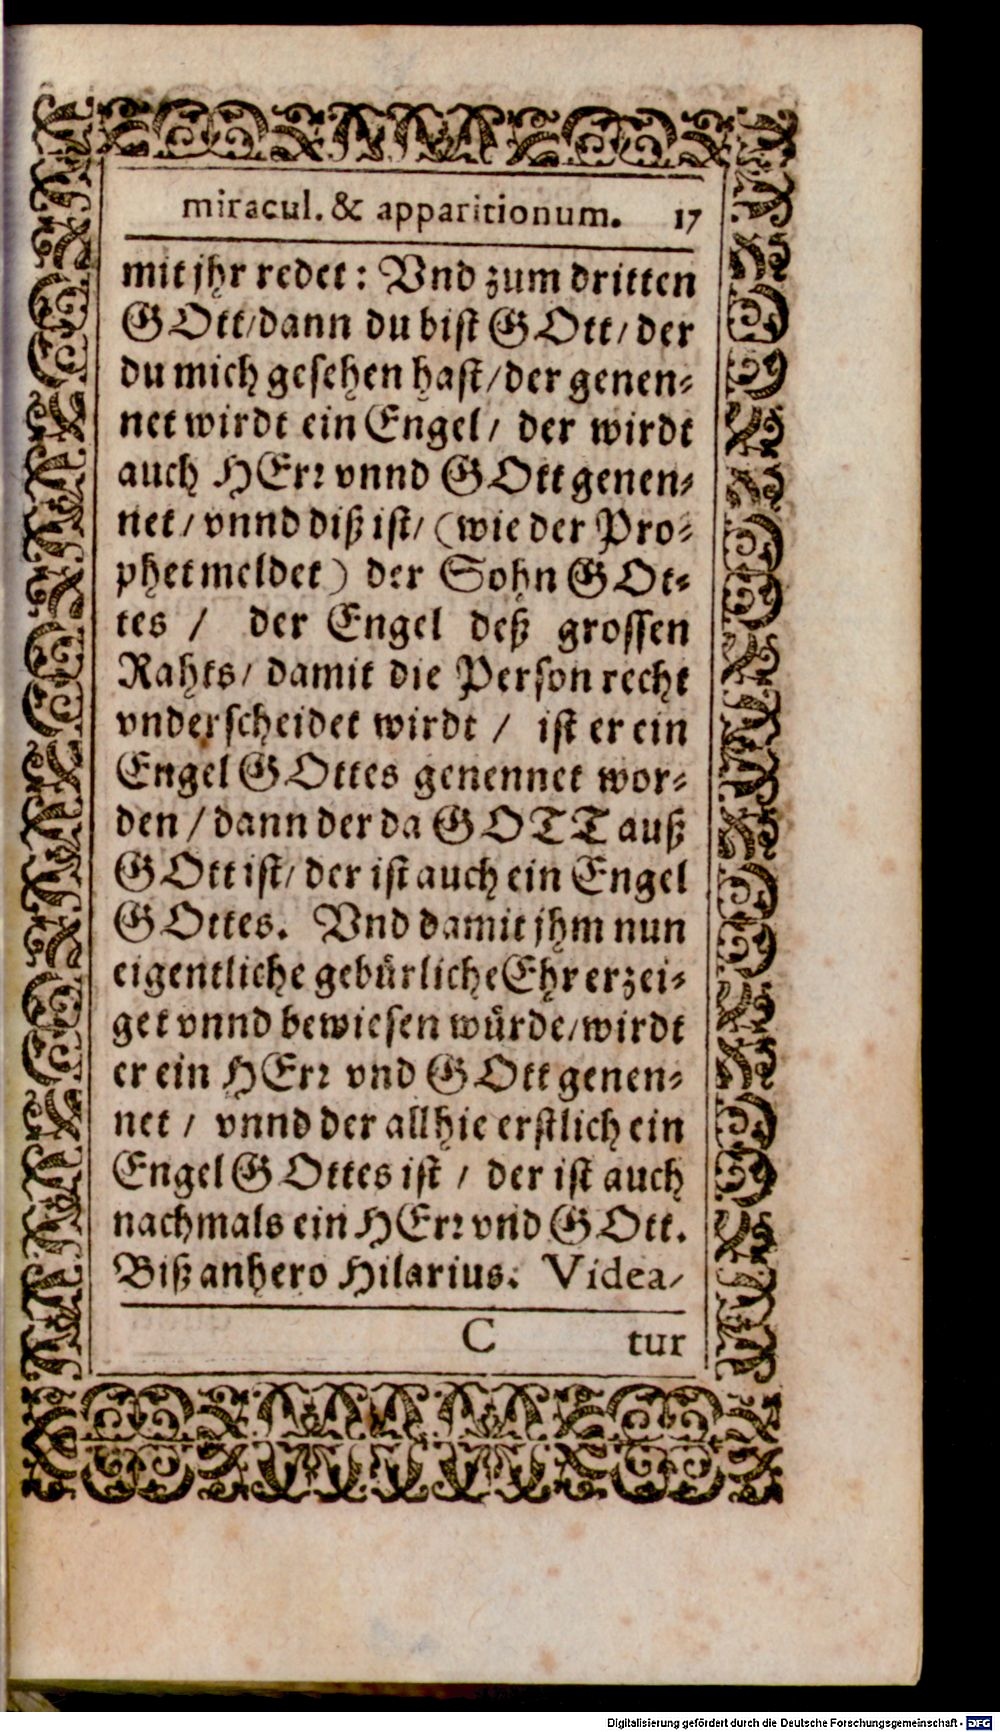 miracul. & apparitionum. 17
mit jhr redet: Vnd zum dritten
GOtt/dann du bist GOtt/ der
du mich gesehen hast/der genen-
net wirdt ein Engel/ der wirdt
auch HErr vnnd GOtt genen-
net/ vnnd diß ist/ (wie der Pro-
phet meldet) der Sohn GOt-
tes / der Engel deß grossen
Rahts/ damit die Person recht
vnderscheidet wirdt / ist er ein
Engel GOttes genennet wor-
den / dann der da GOTT auß
GOtt ist/ der ist auch ein Engel
GOttes. Vnd damit jhm nun
eigentliche gebürliche Ehr erzei-
get vnnd bewiesen würde/wirdt
er ein HErr vnd GOtt genen-
net / vnnd der allhie erstlich ein
Engel GOttes ist / der ist auch
nachmals ein HErr vnd GOtt.
Biß anhero Hilarius. Videa-
C tur
Digitalisierung gefördert durch die Deutsche Forschungsgemeinschaft - DFG